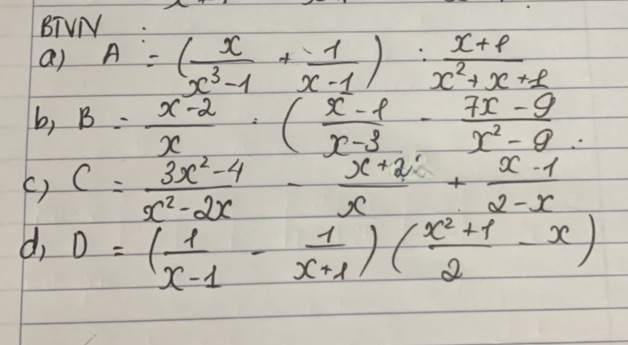 BTVN :
a) A = (x/(x³-1) + 1/(x-1)) : (x+1)/(x²+x+1)
b, B = (x-2)/x : ((x-1)/(x-3) - (7x-9)/(x²-9) .
c, C = (3x²-4)/(x²-2x) - (x+2)/x + (x-1)/(2-x)
d, D = (1/(x-1) - 1/(x+1)) ((x²+1)/2 - x)